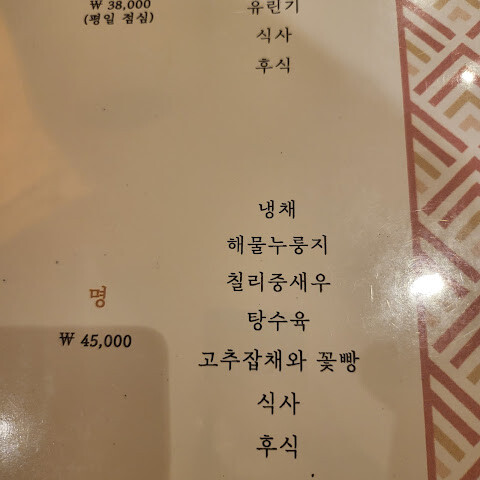 ₩ 38,000
(평일 점심)
유린기
식사
후식
명
₩ 45,000
냉채
해물누룽지
칠리중새우
탕수육
고추잡채와 꽃빵
식사
후식